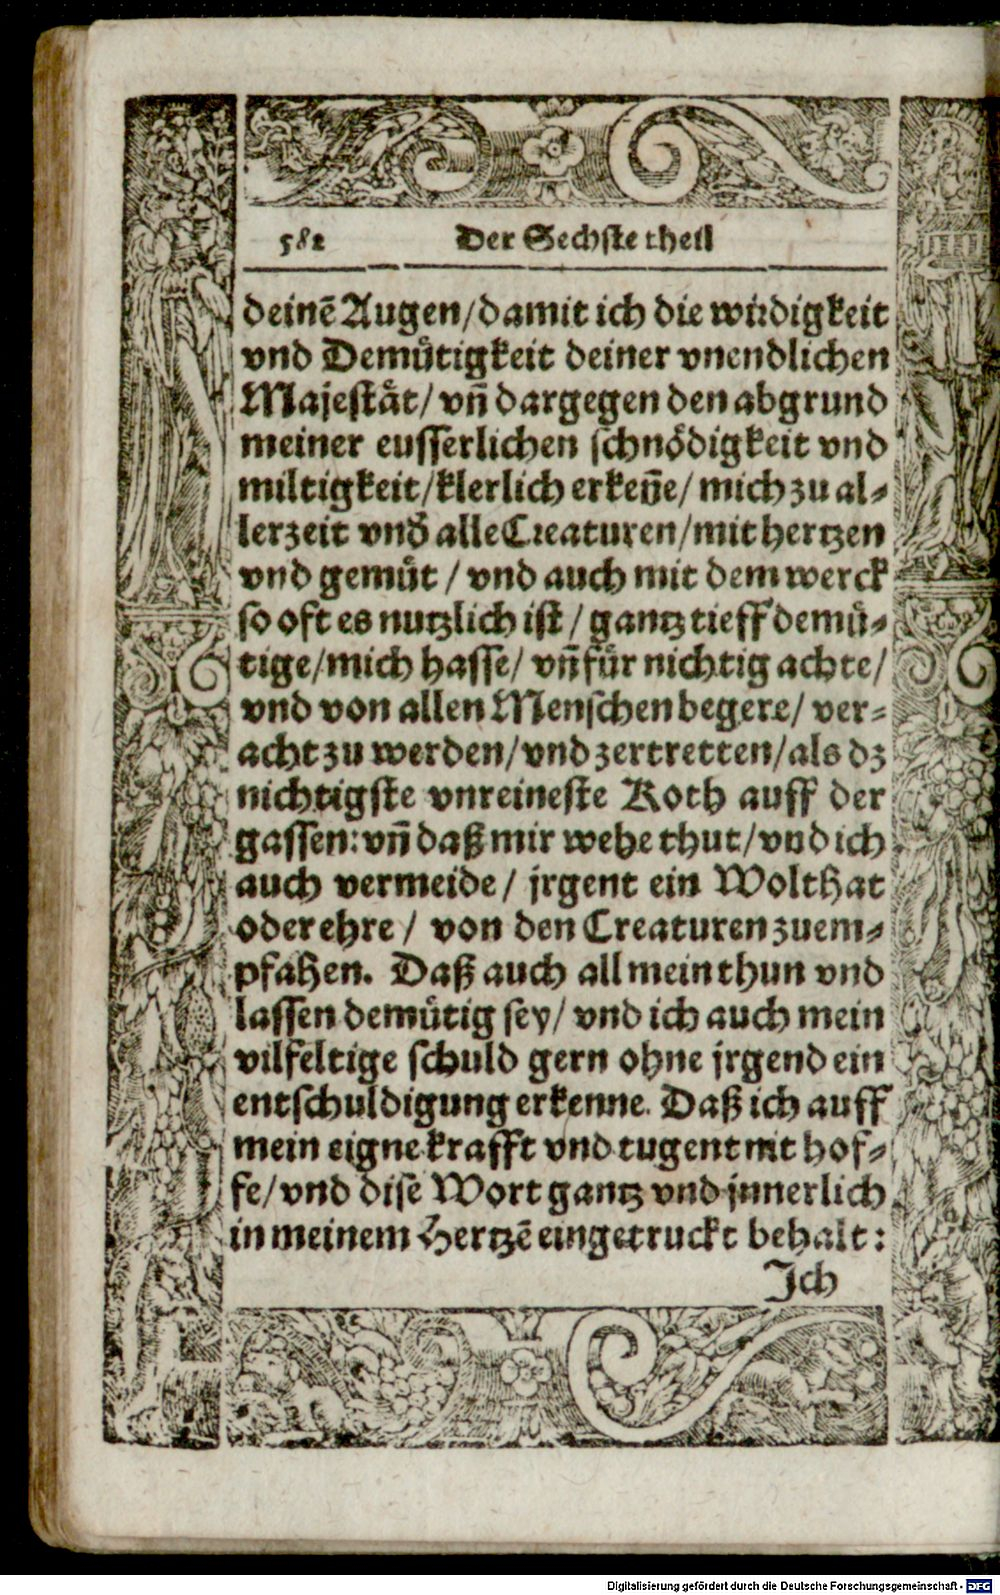 582 Der Sechste theil
deinē Augen/damit ich die wirdigkeit
vnd Demuͤtigkeit deiner vnendlichen
Majestaͤt/ vñ dargegen den abgrund
meiner eusserlichen schnoͤdigkeit vnd
miltigkeit/klerlich erkeñe/ mich zu al⸗
lerzeit vnd alle Creaturen/mit hertzen
vnd gemuͤt / vnd auch mit dem werck
so oft es nutzlich ist / gantz tieff demuͤ⸗
tige/mich hasse/ vñ fuͤr nichtig achte/
vnd von allen Menschen begere/ ver⸗
acht zu werden/vnd zertretten/als dz
nichtigste vnreineste Koth auff der
gassen: vñ daß mir wehe thut/vnd ich
auch vermeide/ jrgent ein Wolthat
oder ehre / von den Creaturen zuem⸗
pfahen. Daß auch all mein thun vnd
lassen demuͤtig sey/ vnd ich auch mein
vilfeltige schuld gern ohne jrgend ein
entschuldigung erkenne. Daß ich auff
mein eigne krafft vnd tugent nit hof⸗
fe/vnd dise Wort gantz vnd jnnerlich
in meinem Hertzē eingetruckt behalt:
Jch
Digitalisierung gefördert durch die Deutsche Forschungsgemeinschaft - DFG